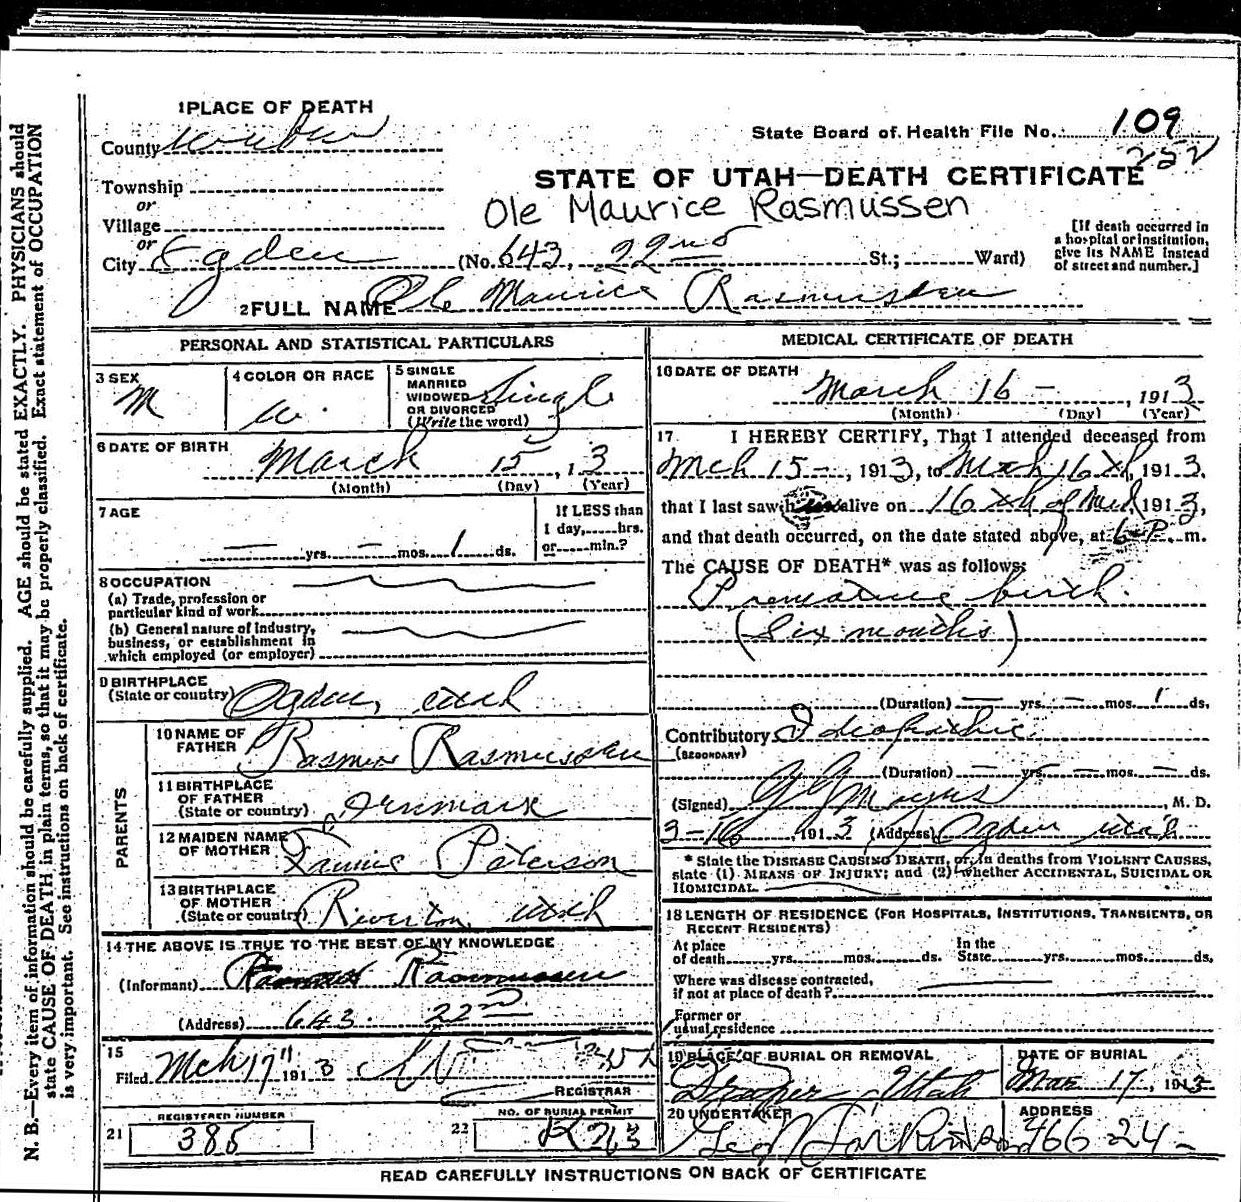 1 PLACE OF DEATH
County Weber
State Board of Health File No. 109
252
Township
or
Village
or
City Ogden (No. 643, 22nd St.; Ward)
STATE OF UTAH—DEATH CERTIFICATE
Ole Maurice Rasmussen
[If death occurred in
a hospital or institution,
give its NAME instead
of street and number.]
2 FULL NAME Ole Maurice Rasmussen
PERSONAL AND STATISTICAL PARTICULARS
3 SEX
M
4 COLOR OR RACE
W.
5 SINGLE
MARRIED
WIDOWED
OR DIVORCED
(Write the word)
Single
6 DATE OF BIRTH
March 15, 1 3
(Month) (Day) (Year)
7 AGE
— yrs. — mos. 1 ds.
If LESS than
1 day, hrs.
or min.?
8 OCCUPATION
(a) Trade, profession or
particular kind of work
(b) General nature of industry,
business, or establishment in
which employed (or employer)
9 BIRTHPLACE
(State or country) Ogden, Utah
PARENTS
10 NAME OF
FATHER Rasmus Rasmussen
11 BIRTHPLACE
OF FATHER
(State or country) Denmark
12 MAIDEN NAME
OF MOTHER Fannie Peterson
13 BIRTHPLACE
OF MOTHER
(State or country) Riverton, Utah
14 THE ABOVE IS TRUE TO THE BEST OF MY KNOWLEDGE
(Informant) Rasmus Rasmussen
(Address) 643. 22nd
15
Filed Mch 17" 1913
REGISTRAR
REGISTERED NUMBER
21 385
NO. OF BURIAL PERMIT
22
MEDICAL CERTIFICATE OF DEATH
16 DATE OF DEATH
March 16 - , 1913
(Month) (Day) (Year)
17 I HEREBY CERTIFY, That I attended deceased from
Mch 15 - , 1913, to Mch 16th, 1913.
that I last saw h alive on 16th of Mch, 1913,
and that death occurred, on the date stated above, at 6 P. m.
The CAUSE OF DEATH* was as follows:
Premature birth.
(Six months)
(Duration) — yrs. — mos. 1 ds.
Contributory Idiopathic.
(SECONDARY)
(Duration) — yrs. — mos. — ds.
(Signed) , M. D.
3-16 1913 (Address) Ogden Utah
* State the DISEASE CAUSING DEATH, or, in deaths from VIOLENT CAUSES,
state (1) MEANS OF INJURY; and (2) whether ACCIDENTAL, SUICIDAL OR
HOMICIDAL.
18 LENGTH OF RESIDENCE (FOR HOSPITALS, INSTITUTIONS, TRANSIENTS, OR
RECENT RESIDENTS)
At place
of death yrs. mos. ds.
In the
State yrs. mos. ds.
Where was disease contracted,
if not at place of death?
Former or
usual residence
19 PLACE OF BURIAL OR REMOVAL
Draper, Utah
DATE OF BURIAL
Mar 17, 1913
20 UNDERTAKER
Geo W Larkin
ADDRESS
466 24 -
READ CAREFULLY INSTRUCTIONS ON BACK OF CERTIFICATE
N. B.—Every item of information should be carefully supplied. AGE should be stated EXACTLY. PHYSICIANS should
state CAUSE OF DEATH in plain terms, so that it may be properly classified. Exact statement of OCCUPATION
is very important. See instructions on back of certificate.